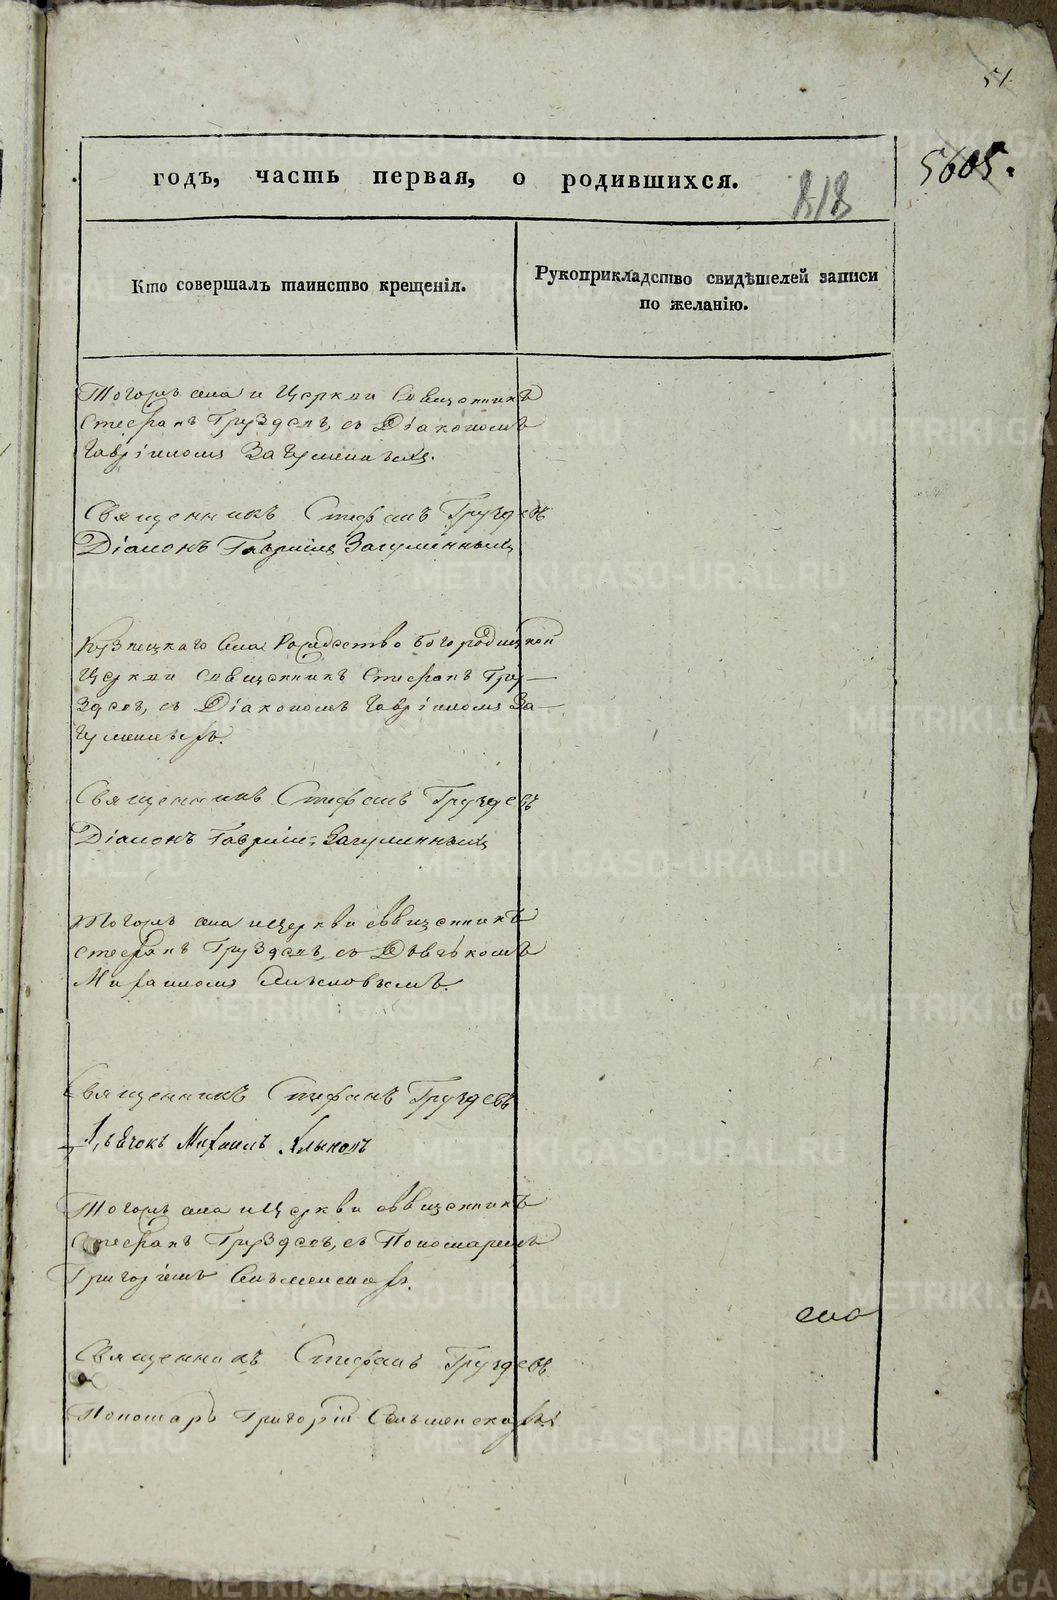 51.
5605.
годъ, часть первая, о родившихся.
818
Кто совершалъ таинство крещенія.
Рукоприкладство свидѣтелей записи
по желанію.
Тогожъ села и Церкви Священникъ
Стефанъ Груздевъ, съ Діакономъ
Гавріиломъ Загуменныхъ.
Священникъ Стефанъ Груздевъ
Діаконъ Гавріилъ Загуменныхъ
села Рождество Богородицкой
Церкви Священникъ Стефанъ Гру-
здевъ, съ Діакономъ Гавріиломъ За-
гуменныхъ.
Священникъ Стефанъ Груздевъ
Діаконъ Гавріилъ Загуменныхъ
Тогожъ села и Церкви Священникъ
Стефанъ Груздевъ, съ Дьячкомъ
Михаиломъ
Священникъ Стефанъ Груздевъ
Дьячокъ Михаилъ
Тогожъ села и Церкви Священникъ
Стефанъ Груздевъ, съ Пономаремъ
Григоріемъ
Священникъ Стефанъ Груздевъ
Пономарь Григорій
METRIKI.GASO-URAL.RU